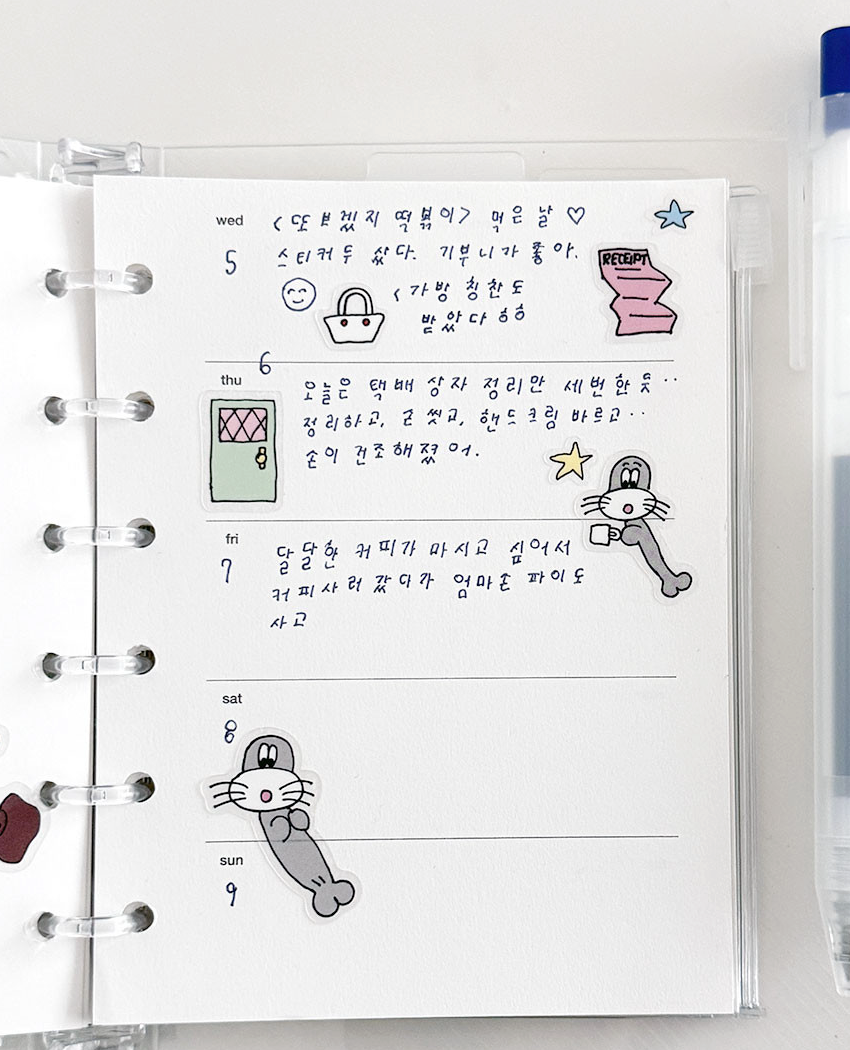 wed
〈또보겠지 떡볶이〉 먹은 날 ♡
5
스티커두 샀다. 기부니가 좋아.
RECEIPT
< 가방 칭찬도
받았다 ㅎㅎ
6
thu
오늘은 택배 상자 정리만 세번한 듯..
정리하고, 손 씻고, 핸드크림 바르고..
손이 건조해졌어.
fri
7
달달한 커피가 마시고 싶어서
커피사러 갔다가 엄마손 파이도
사고
sat
8
sun
9